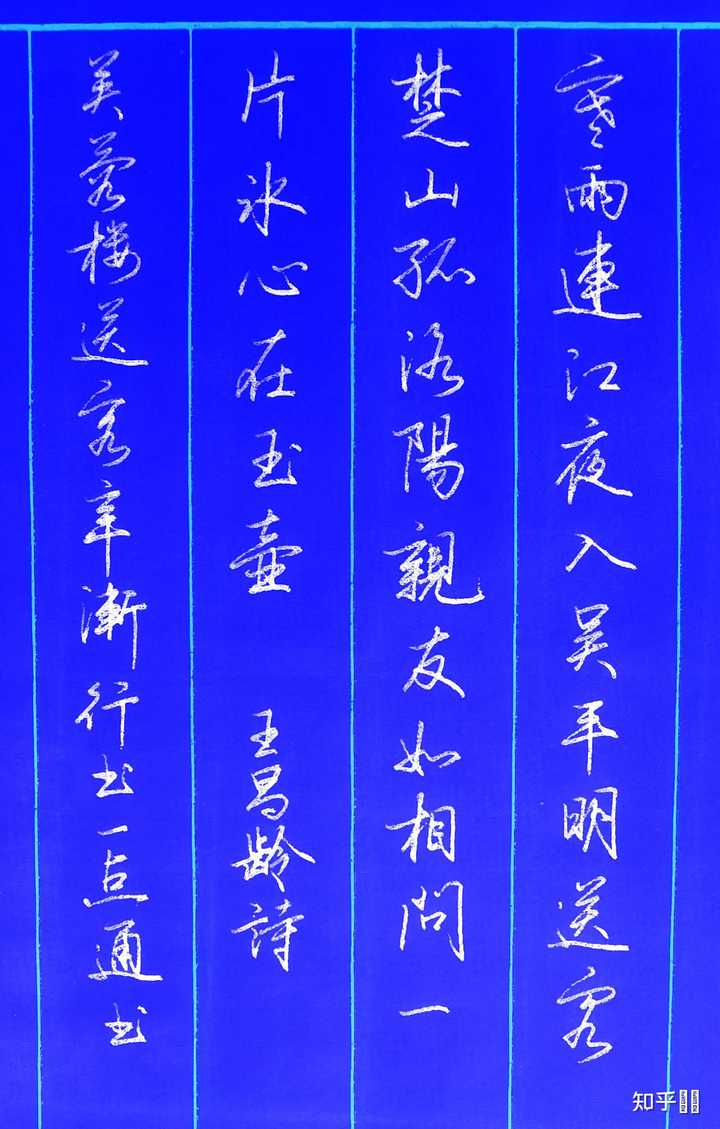 寒雨連江夜入吴平明送客
楚山孤洛陽親友如相問一
片冰心在玉壶 王昌龄詩
芙蓉楼送客辛漸行书一点通书
知乎